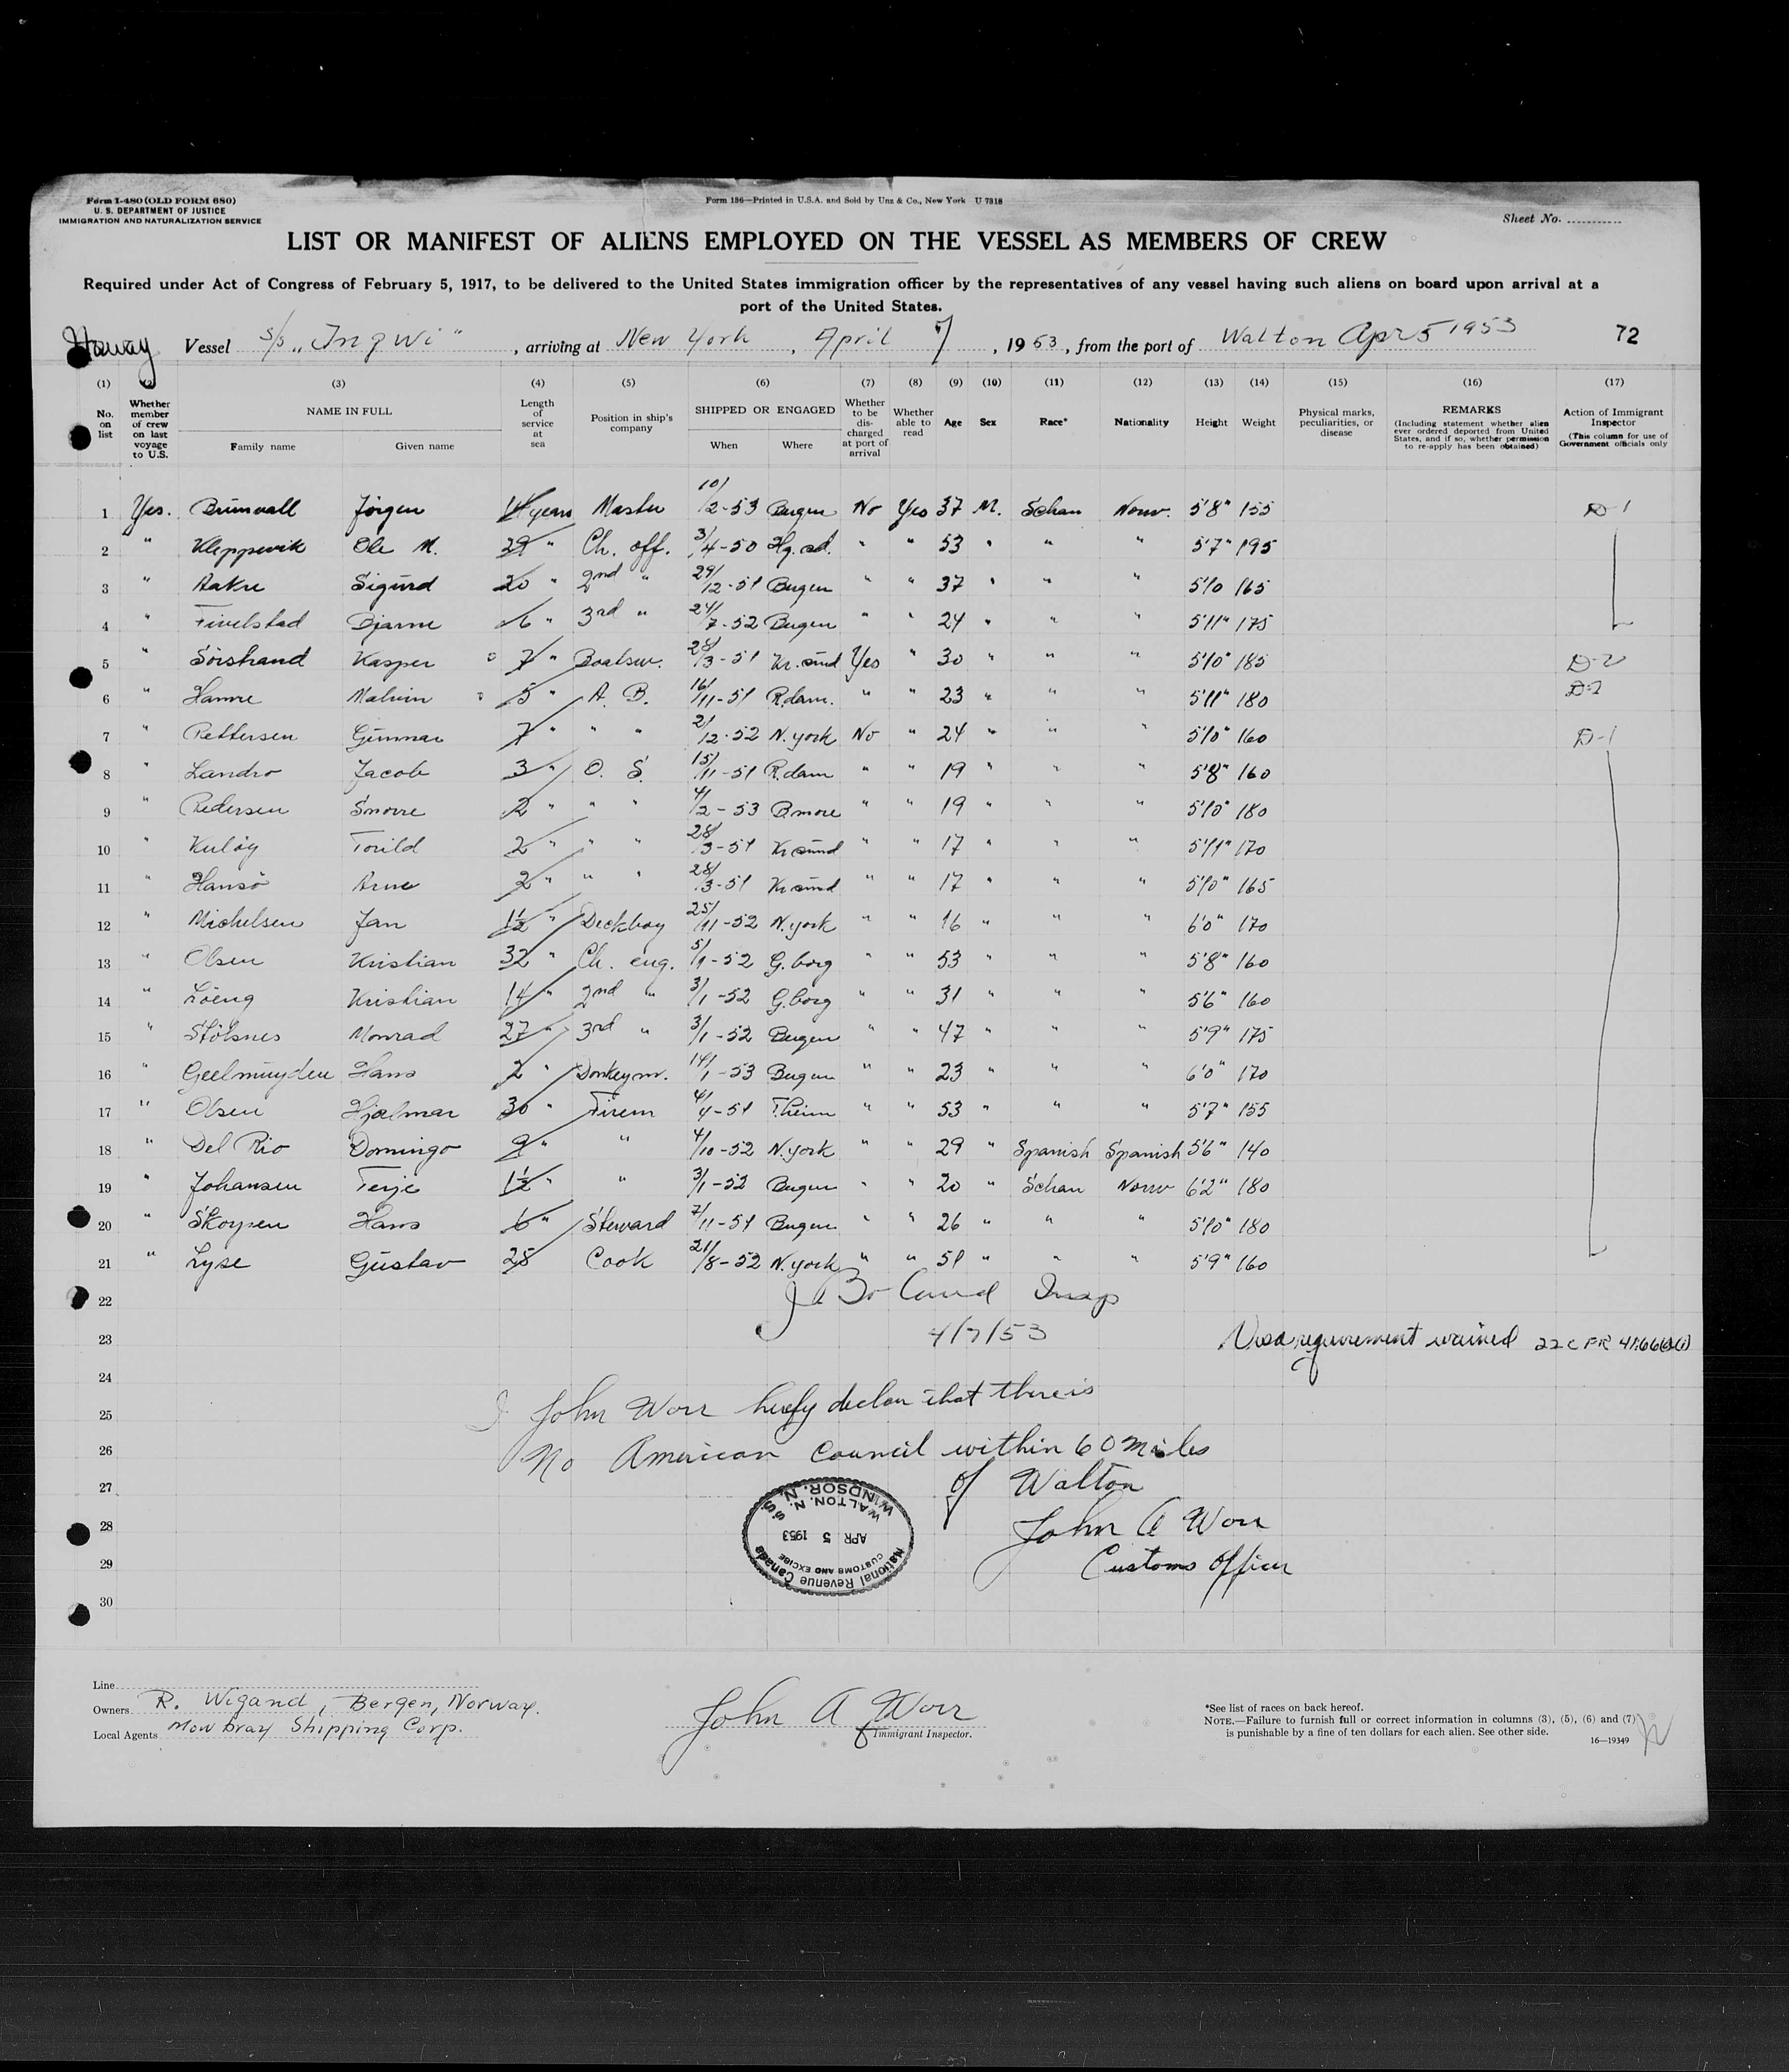 Form I-480 (OLD FORM 680)
U. S. DEPARTMENT OF JUSTICE
IMMIGRATION AND NATURALIZATION SERVICE
Form 136—Printed in U.S.A. and Sold by Unz & Co., New York U 7318
Sheet No.
LIST OR MANIFEST OF ALIENS EMPLOYED ON THE VESSEL AS MEMBERS OF CREW
Required under Act of Congress of February 5, 1917, to be delivered to the United States immigration officer by the representatives of any vessel having such aliens on board upon arrival at a
port of the United States.
Vessel S/s „Ingwi", arriving at New York, April 7, 1953, from the port of Walton Apr 5 1953 72
(1) (2) (3) (4) (5) (6) (7) (8) (9) (10) (11) (12) (13) (14) (15) (16) (17)
No. on list
Whether member of crew on last voyage to U.S.
NAME IN FULL
Family name Given name
Length of service at sea
Position in ship's company
SHIPPED OR ENGAGED
When Where
Whether to be discharged at port of arrival
Whether able to read
Age Sex Race* Nationality Height Weight
Physical marks, peculiarities, or disease
REMARKS
(Including statement whether alien ever ordered deported from United States, and if so, whether permission to re-apply has been obtained)
Action of Immigrant Inspector
(This column for use of Government officials only
1 Yes. Brünvall Jörgen 14 years Master 10/2-53 Bergen No Yes 37 M. Schan Norw. 5'8" 155 D-1
2 " Kleppevik Ole M. 39 " Ch. off. 3/4-50 Hg.sd. " " 53 " " " 5'7" 195
3 " Aakre Sigurd 20 " 2nd " 29/12-51 Bergen " " 37 " " " 5'10 165
4 " Fivelstad Bjarne 6 " 3rd " 24/7-52 Bergen " " 24 " " " 5'11" 175
5 " Sörstrand Kasper 7 " Boatsw. 28/3-51 Kr.sund Yes " 30 " " " 5'10" 185 D-2
6 " Hamre Malvin 5 " A. B. 16/11-51 R.dam. " " 23 " " " 5'11" 180 D-2
7 " Pettersen Gunnar 7 " " " 2/12-52 N.york No " 24 " " " 5'10" 160 D-1
8 " Landro Jacob 3 " O. S. 15/11-51 R.dam " " 19 " " " 5'8" 160
9 " Pedersen Snorre 2 " " " 4/2-53 B.more " " 19 " " " 5'10" 180
10 " Kulöy Torild 2 " " " 28/3-51 Kr.sund " " 17 " " " 5'11" 170
11 " Hansö Arne 2 " " " 28/3-51 Kr.sund " " 17 " " " 5'10" 165
12 " Michelsen Jan 1½ " Deckboy 25/11-52 N.york " " 16 " " " 6'0" 170
13 " Olsen Kristian 32 " Ch. eng. 5/1-52 G.borg " " 53 " " " 5'8" 160
14 " Löeng Kristian 14 " 2nd " 3/1-52 G.borg " " 31 " " " 5'6" 160
15 " Stölsnes Monrad 27 " 3rd " 3/1-52 Bergen " " 47 " " " 5'9" 175
16 " Geelmuyden Hans 2 " Donkeym. 14/1-53 Bergen " " 23 " " " 6'0" 170
17 " Olsen Hjalmar 30 " Firem 4/4-51 T.heim " " 53 " " " 5'7" 155
18 " Del Rio Domingo 9 " " 4/10-52 N.york " " 29 " Spanish Spanish 5'6" 140
19 " Johansen Terje 1½ " " 3/1-52 Bergen " " 20 " Schan Norw 6'2" 180
20 " Skoyen Hans 6 " Steward 7/11-51 Bergen " " 26 " " " 5'10" 180
21 " Lyse Gustav 28 Cook 21/8-52 N.york " " 51 " " " 5'9" 160
22 Insp
23 4/7/53 Visa requirement waived 22 CFR
24
25 I John Worr herby declare that there is
26 No American Council within 60 Miles
27 of Walton
28 John A Worr
29 Customs Officer
30
National Revenue Canada
CUSTOMS AND EXCISE
APR 5 1953
WALTON, N. S.
WINDSOR, N. S.
Line
Owners R. Wigand, Bergen, Norway.
Local Agents Mowbray Shipping Corp.
John A Worr
Immigrant Inspector.
*See list of races on back hereof.
NOTE.—Failure to furnish full or correct information in columns (3), (5), (6) and (7)
is punishable by a fine of ten dollars for each alien. See other side.
16—19349